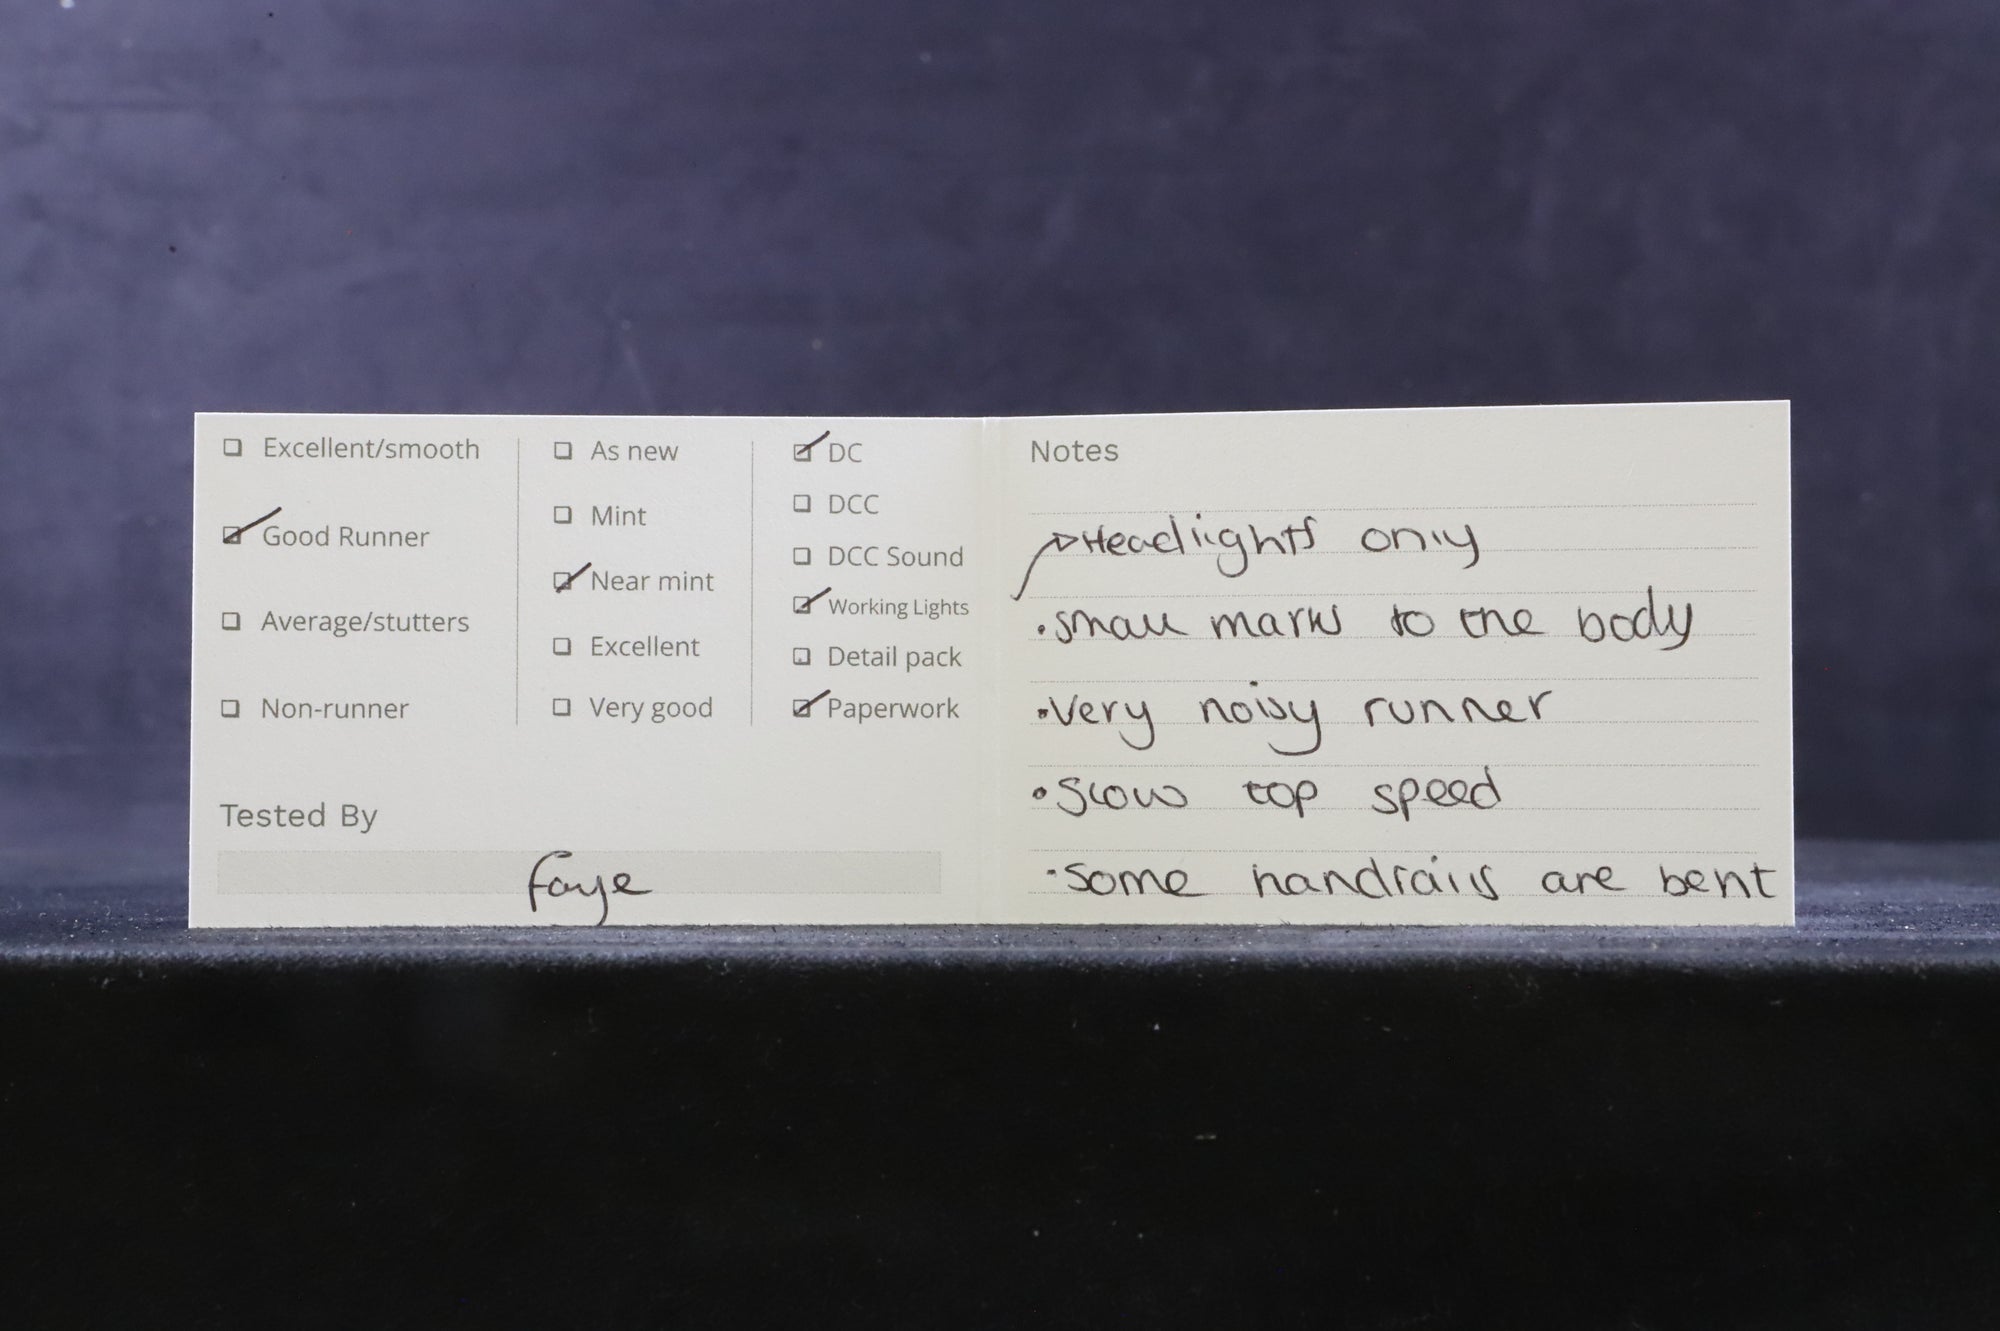 ☐ Excellent/smooth
☑ Good Runner
☐ Average/stutters
☐ Non-runner
☐ As new
☐ Mint
☑ Near mint
☐ Excellent
☐ Very good
☑ DC
☐ DCC
☐ DCC Sound
☑ Working Lights
☐ Detail pack
☑ Paperwork
Tested By
faye
Notes
→ Headlights only
• small marks to the body
• Very noisy runner
• Slow top speed
• Some handrails are bent